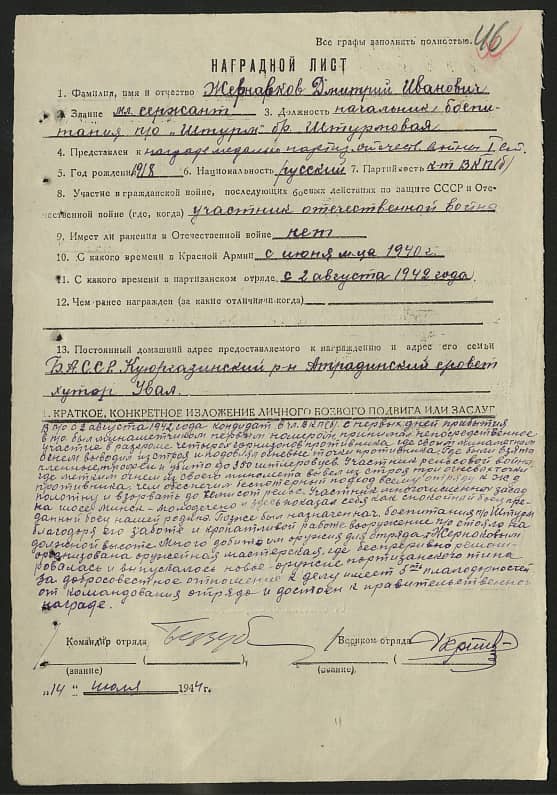 Все графы заполнять полностью.
46
НАГРАДНОЙ ЛИСТ
1. Фамилия, имя и отчество Жернавков Дмитрий Иванович
2. Звание мл. сержант 3. Должность начальник боепи-
тания п/о "Штурм" бр. Штурмовая
4. Представлен к награде медали партиз. отечеств. войны I ст.
5. Год рождения 1918 6. Национальность русский 7. Партийность к-т ВКП(б)
8. Участие в гражданской войне, последующих боевых действиях по защите СССР и Оте-
чественной войне (где, когда) участник отечественной война
9. Имеет ли ранения в Отечественной войне нет
10. С какого времени в Красной Армии с июня м-ца 1940 г.
11. С какого времени в партизанском отряде с 2 августа 1942 года
12. Чем ранее награжден (за какие отличия и когда)
13. Постоянный домашний адрес представляемого к награждению и адрес его семьи
БАССР. Куюргазинский р-н Атрадинский с/совет
хутор Увал.
1. КРАТКОЕ, КОНКРЕТНОЕ ИЗЛОЖЕНИЕ ЛИЧНОГО БОЕВОГО ПОДВИГА ИЛИ ЗАСЛУГ
В п/о с 2 августа 1942 года кандидат в чл. ВКП(б) с первых дней прибытия
в п/о был минометчиком первым номером принимал непосредственное
участие в разгроме четырех гарнизонов противника где своим минометным
огнем выводил из строя и подавлял огневые точки противника. Где были взяты
пленные трофеи и убито до 300 гитлеровцев. Участник рельсовой войны,
где метким огнем из своего миномета вывел из строя три огневых точки
противника, чем обеспечил подход всему отряду к ж д
полотну и взорвать до рельс. Участник многочисленных засад
на шоссе Минск - Молодечно и здесь показал себя как смелый боец пре-
данный боец нашей родины. Позже был назначен нач. боепитания п/о Штурм
благодаря его заботе и кропотливой работе вооружение п/о стояло на
должной высоте. Много добыто им оружия для отряда. Жерновковым
организована оружейная мастерская, где бесперебойно ремонти-
ровалась и выпускалось новое оружие партизанского типа
за добросовестное отношение к делу имеет 5 благодарностей
от командования отряда и достоен к правительственной
награде.
Командир отряда Военком отряда
(звание) (звание)
"14" июля 1944 г.